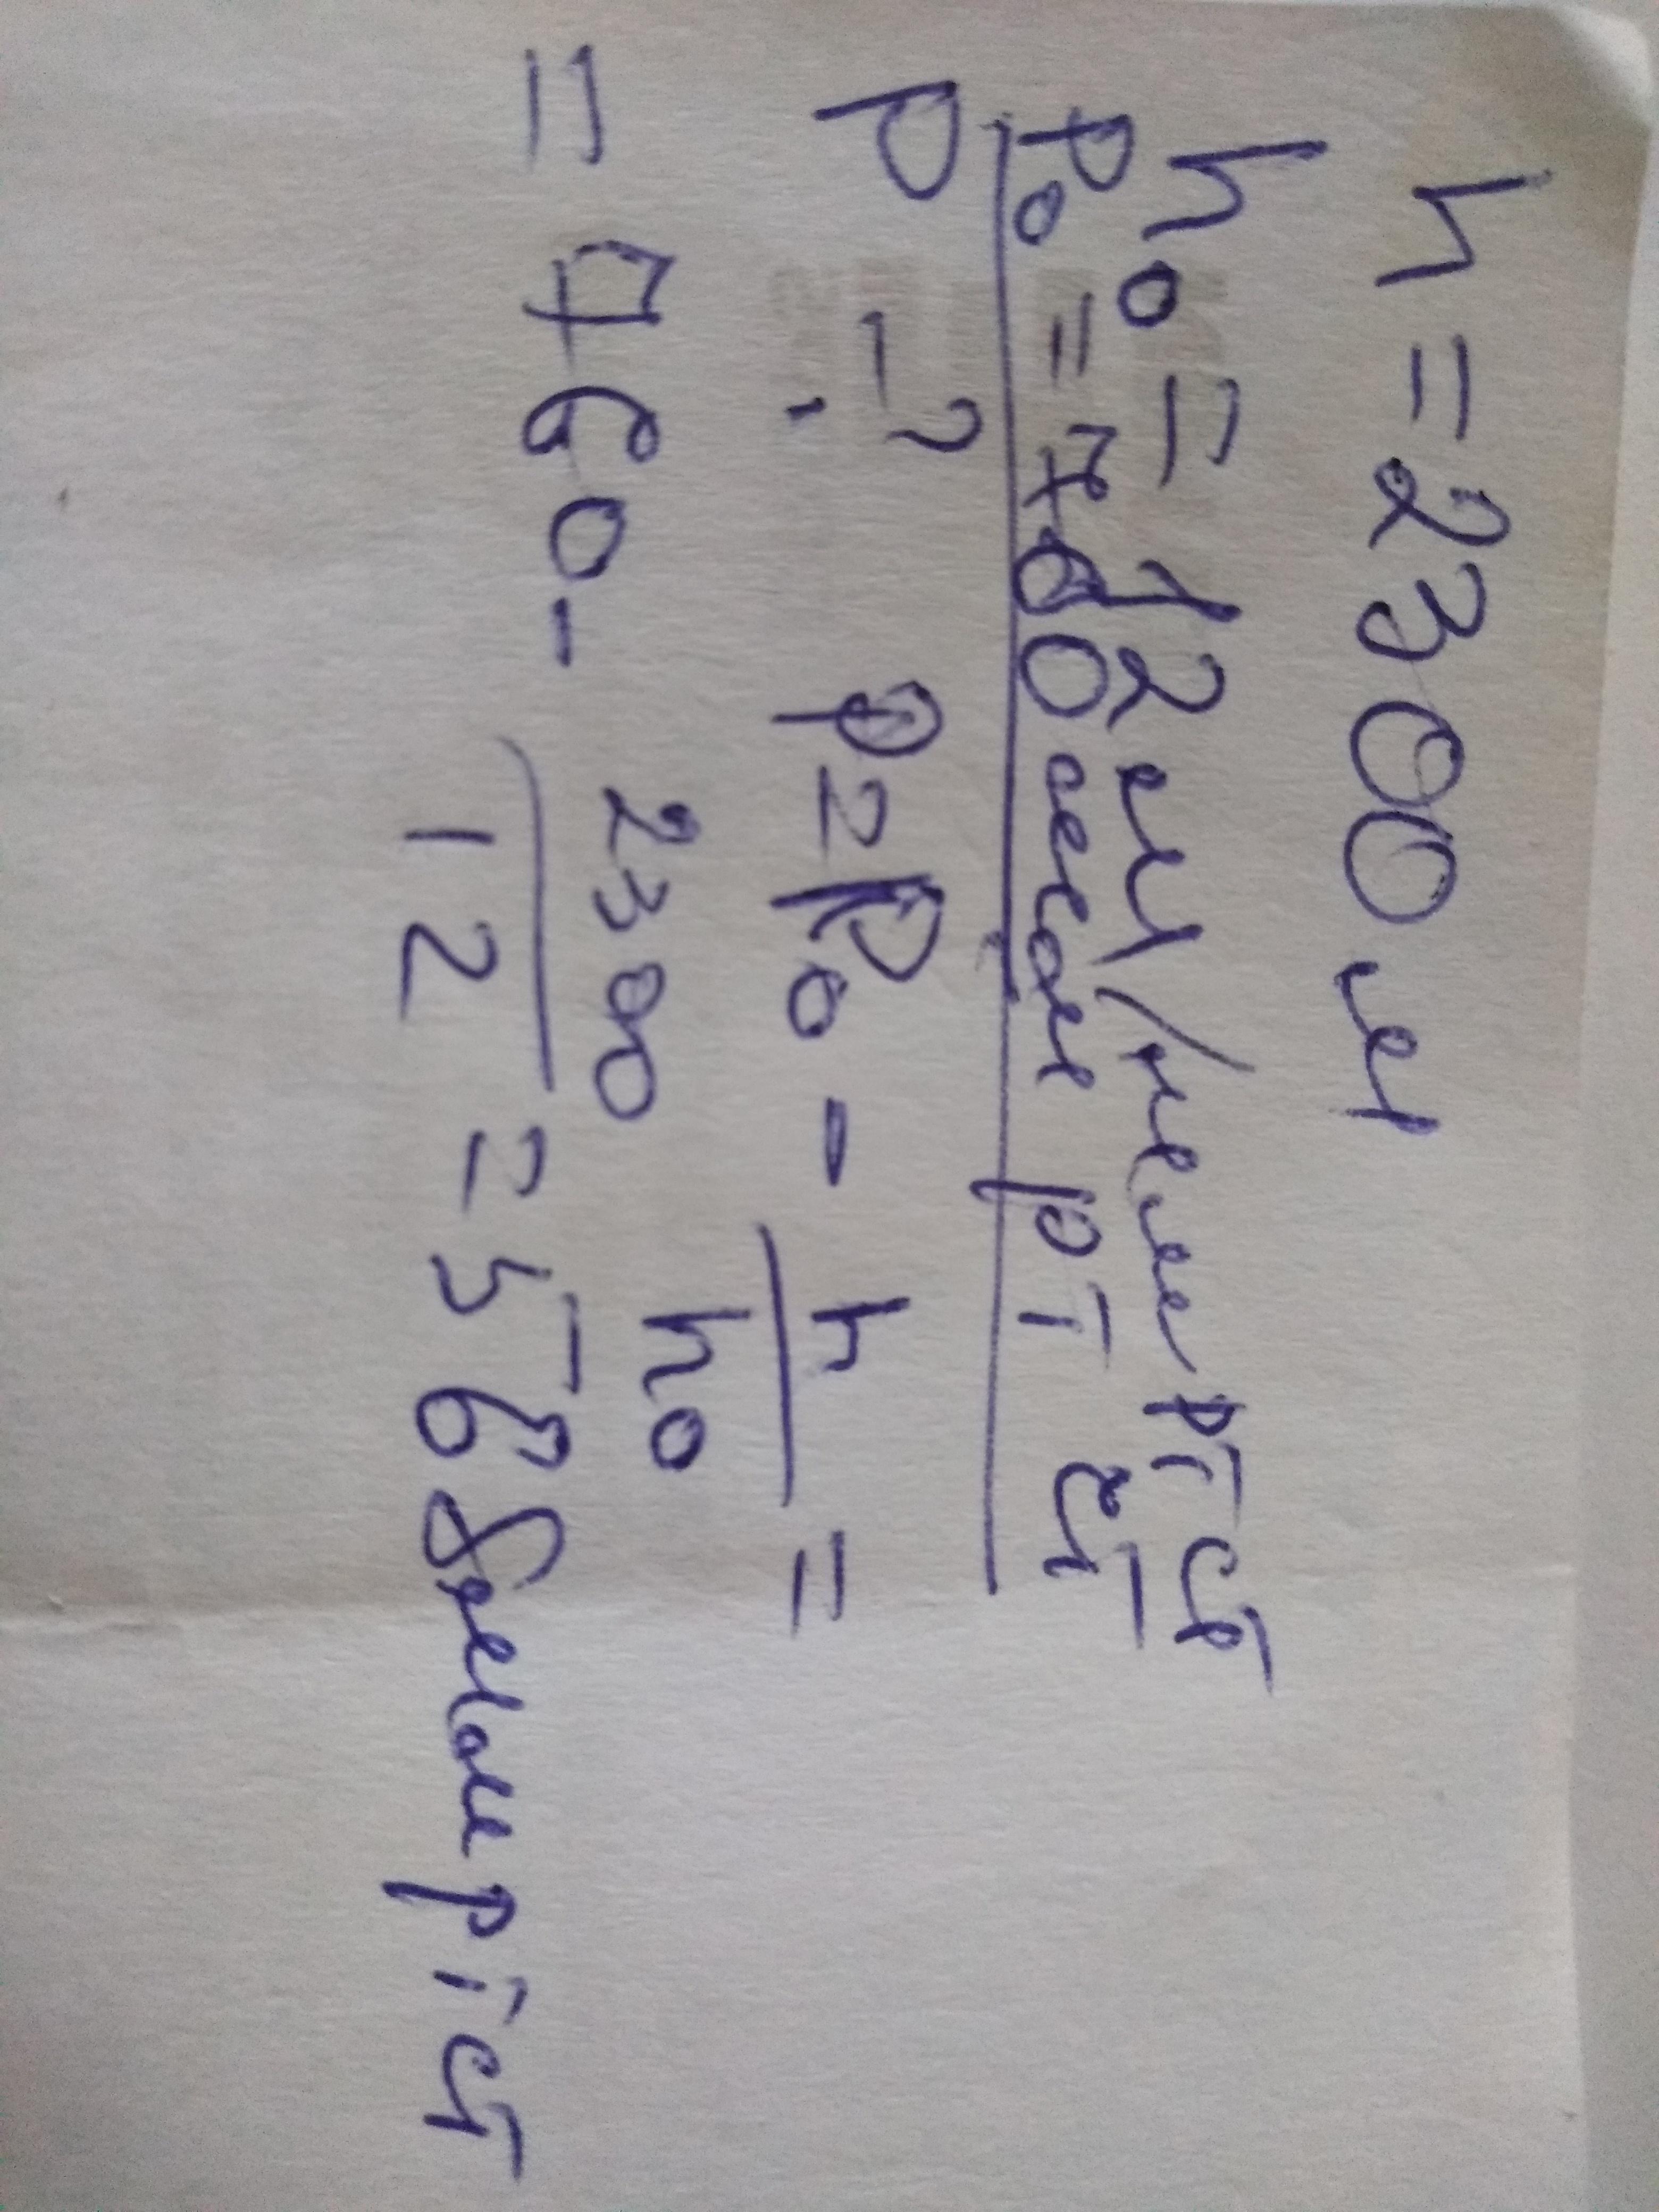 h = 2300 м
h₀ = 12 м/мм рт ст
p₀ = 760 мм рт ст
p - ?
p = p₀ - h/h₀ =
= 760 - 2300/12 = 568 мм рт ст